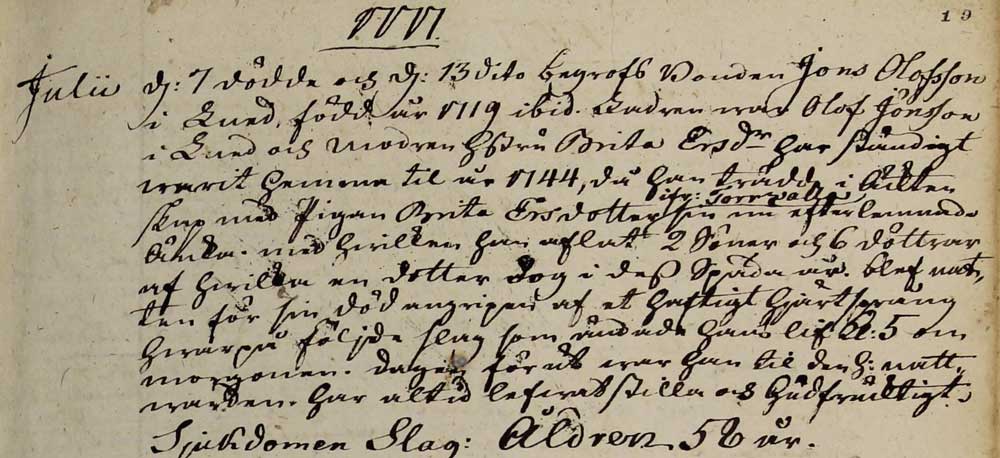 1777.
19
Julii d: 7 dödde och d: 13 dito begrofs Bonden Jöns Olofsson
i Lund, född år 1719 ibid. Fadren war Olof Jönsson
i Lund och Modren Hstru Brita Ersdr har ständigt
warit hemma til år 1744, då han trädde i Äkten
ifr: Torrvahl
skap med Pigan Brita Ersdotter sin nu efterlemnade
Änka. med hwilken han aflat 2 Söner och 6 döttrar
af hwilka en dotter dog i dess Späda år. blef nat-
ten för sin död angripen af et haftigt hjärtsprång
hwarpå följde slag som ändade hans lif Kl: 5 om
morgonen. dagen förut war han til den h: natt-
warden. har altid lefwat stilla och Gudfruktigt.
Sjukdomen Slag: Åldren 58 år.